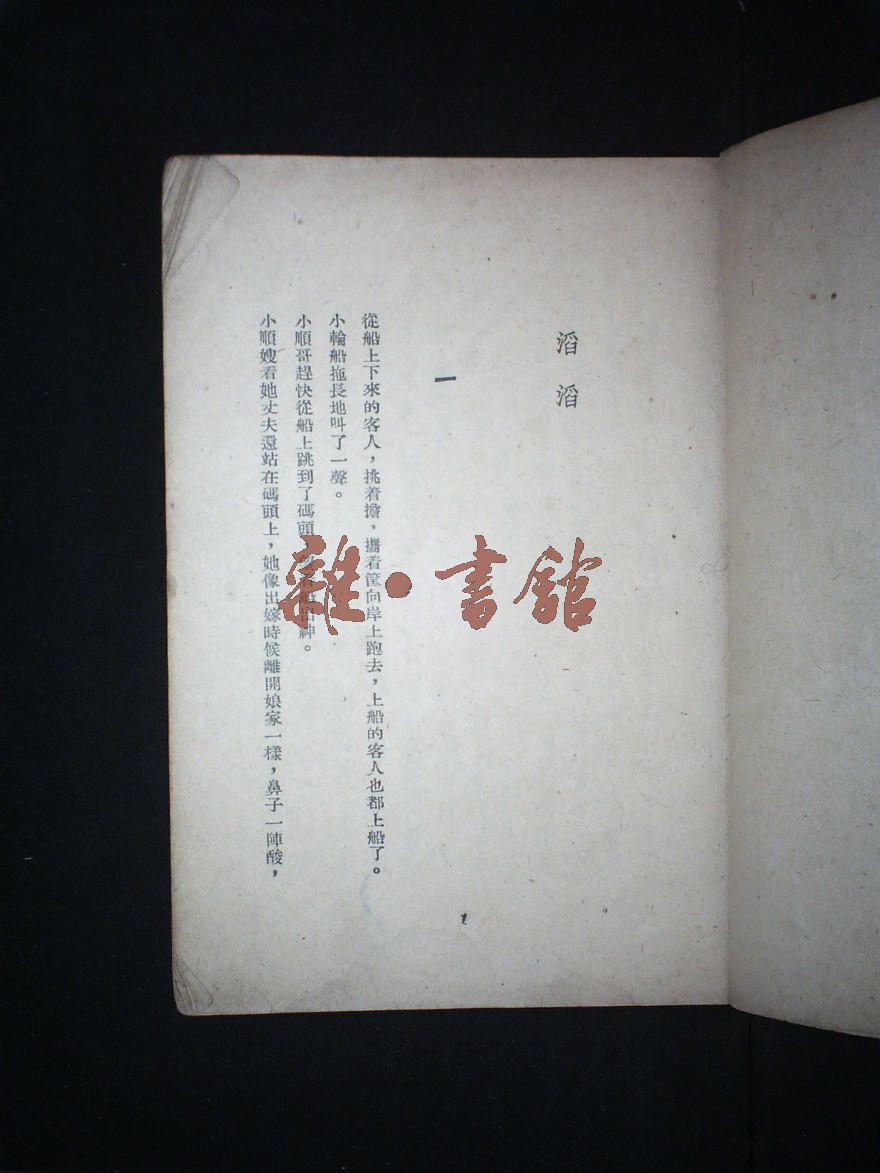 滔滔
一
從船上下來的客人，挑着擔，攜着筐向岸上跑去，上船的客人也都上船了。
小輪船拖長地叫了一聲。
小順哥趕快從船上跳到了碼頭，船出神。
小順嫂看她丈夫還站在碼頭上，她像出嫁時候離開娘家一樣，鼻子一陣酸，
1
雜·書館